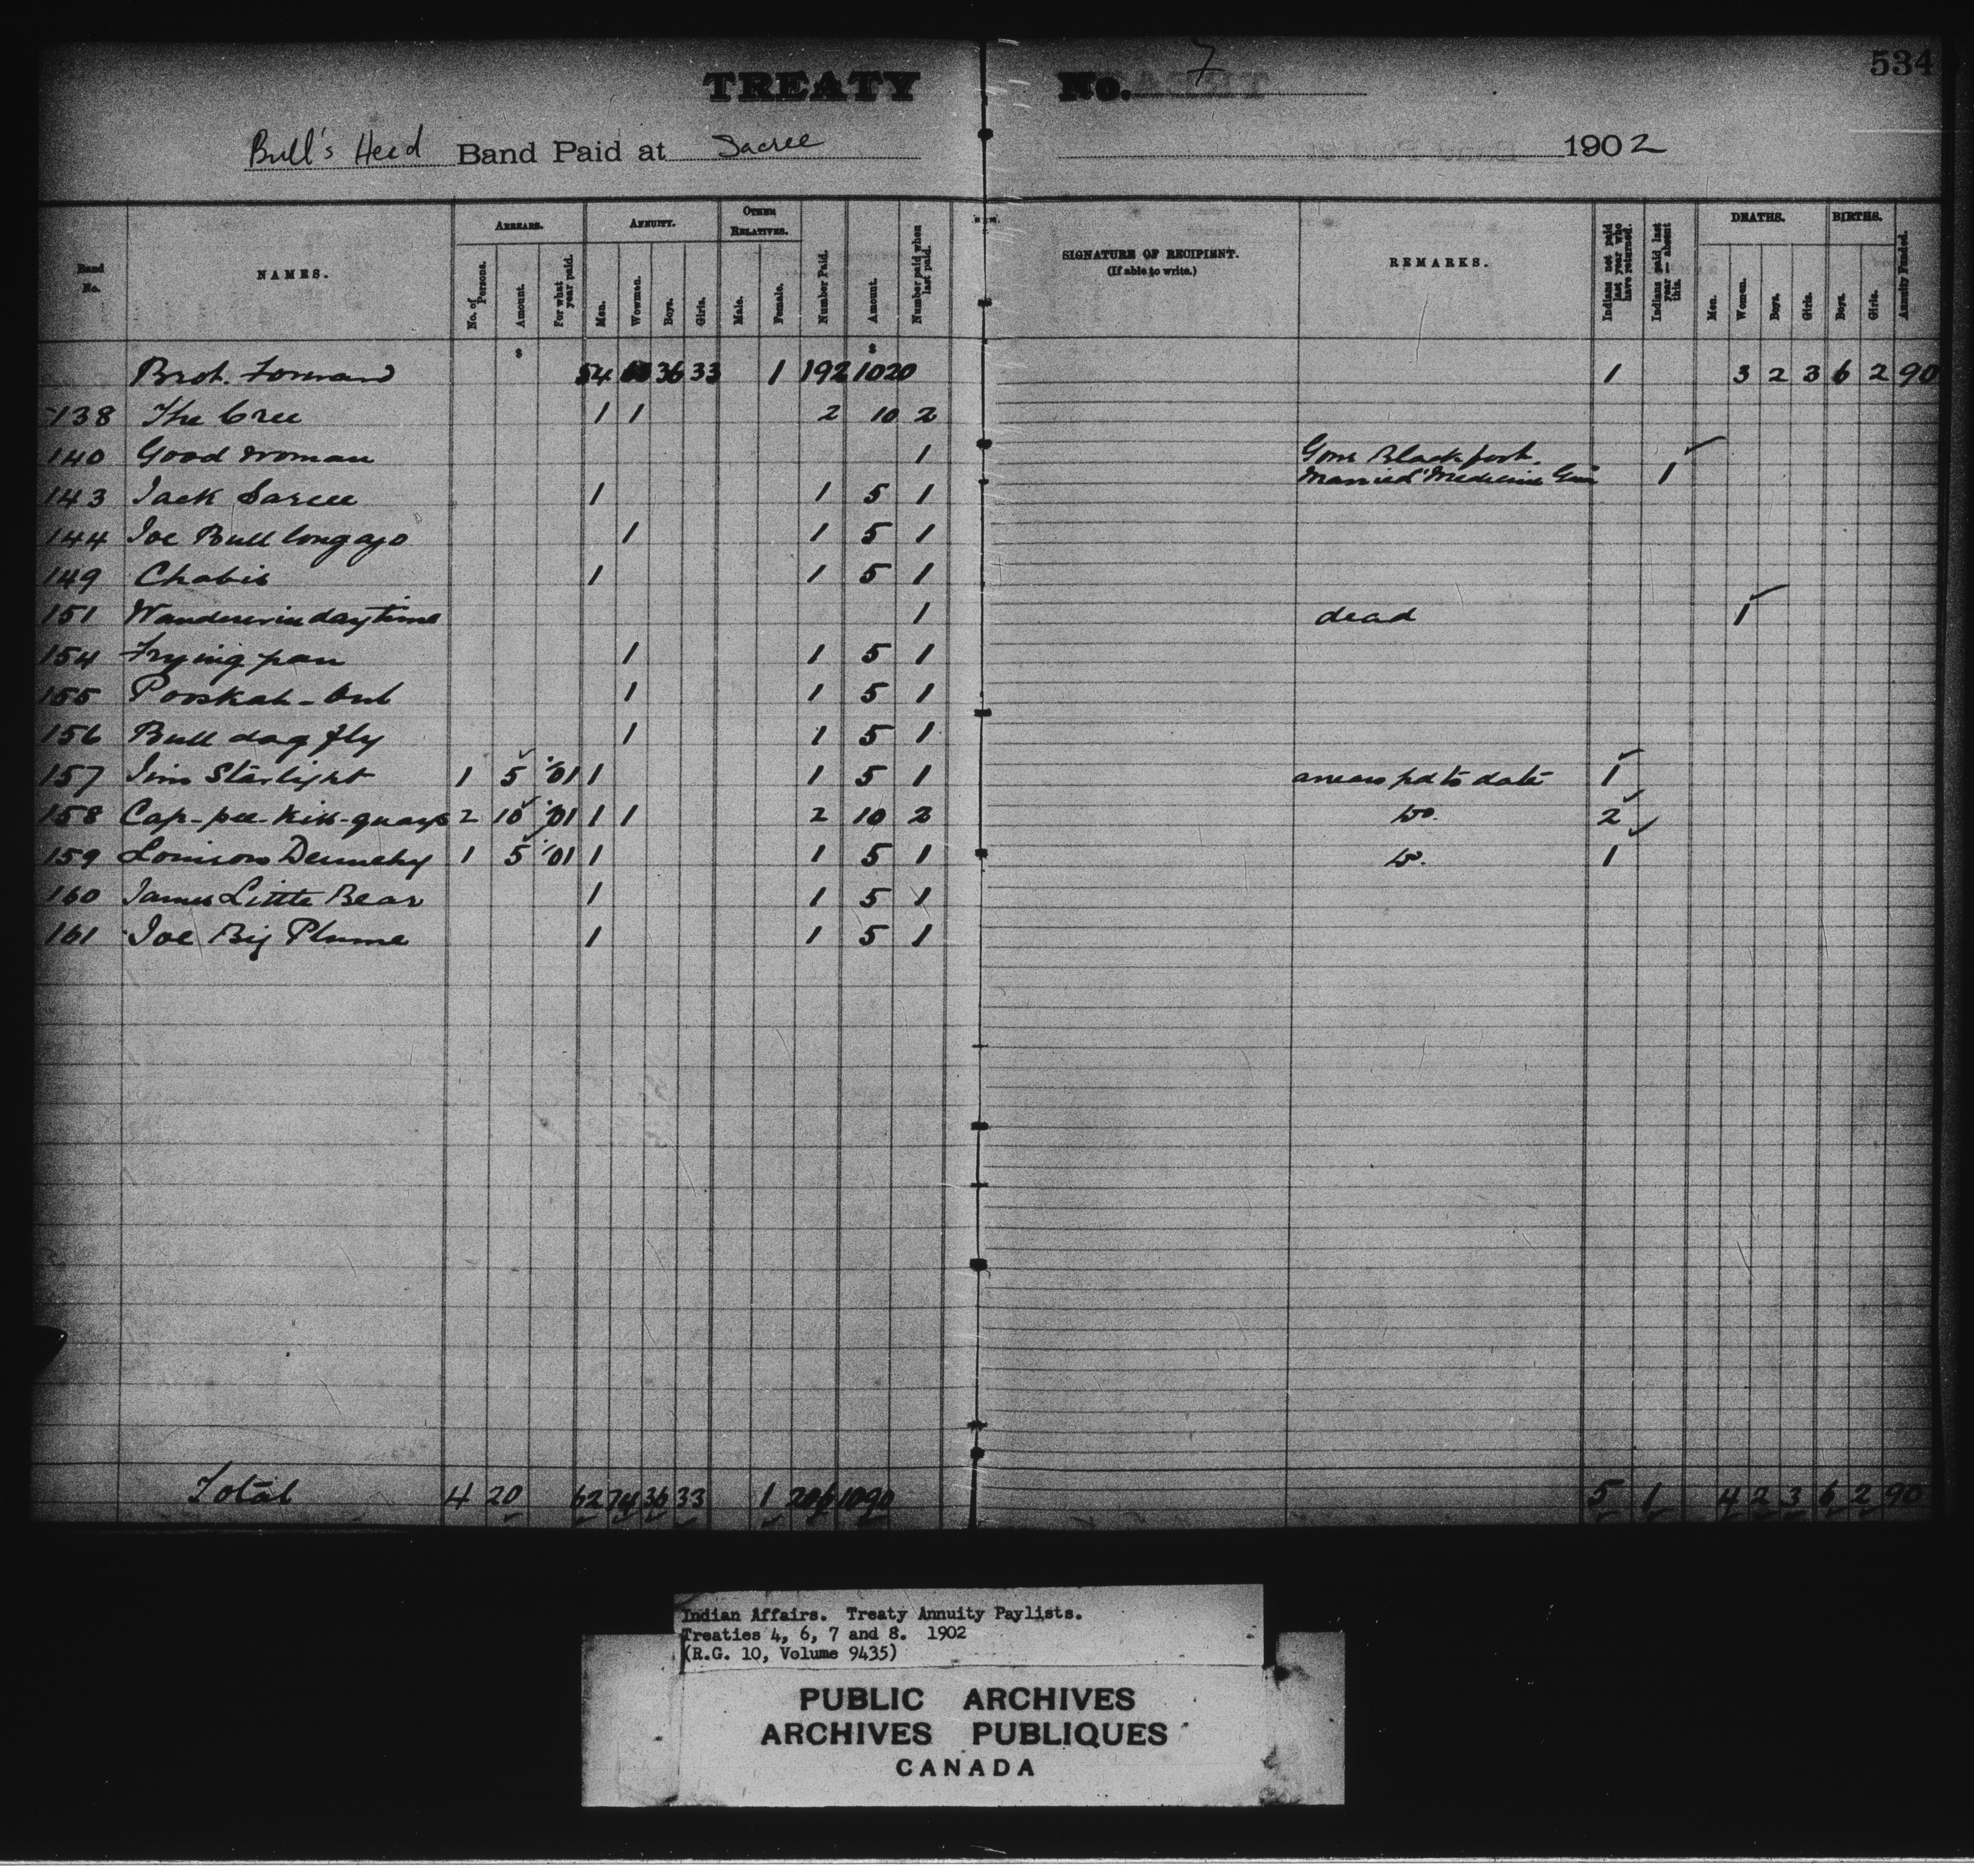 534
TREATY No. 7
Bull's Head Band Paid at Sarcee 1902
Band No. NAMES. ARREARS. No. of Persons. Amount. For what year paid. ANNUITY. Men. Wowmen. Boys. Girls. OTHER RELATIVES. Male. Female. Number Paid. Amount. Number paid when last paid. SIGNATURE OF RECIPIENT. (If able to write.) REMARKS. Indians not paid last year who have returned. Indians paid last year — absent this. DEATHS. Men. Women. Boys. Girls. BIRTHS. Boys. Girls. Annuity Funded.
$ $
Brot. Forward 54 36 33 1 192 1020 1 3 2 3 6 2 90
138 The Cree 1 1 2 10 2
140 Good Woman 1 Gone Blackfoot. Married "Medicine 1
143 Jack Sarcee 1 1 5 1
144 Joe Bull long ago 1 1 5 1
149 Chabis 1 1 5 1
151 Wanders in daytime 1 dead 1
154 Frying pan 1 1 5 1
155 1 1 5 1
156 Bull dog fly 1 1 5 1
157 Jim Starlight 1 5 '01 1 1 5 1 arrears pd to date 1
158 Cap-pee-kiss-quays 2 10 '01 1 1 2 10 2 Do. 2
159 1 5 '01 1 1 5 1 Do. 1
160 James Little Bear 1 1 5 1
161 Joe Big Plume 1 1 5 1
Total 4 20 62 74 36 33 1 206 1090 5 1 4 2 3 6 2 90
Indian Affairs. Treaty Annuity Paylists.
Treaties 4, 6, 7 and 8. 1902
(R.G. 10, Volume 9435)
PUBLIC ARCHIVES
ARCHIVES PUBLIQUES
CANADA